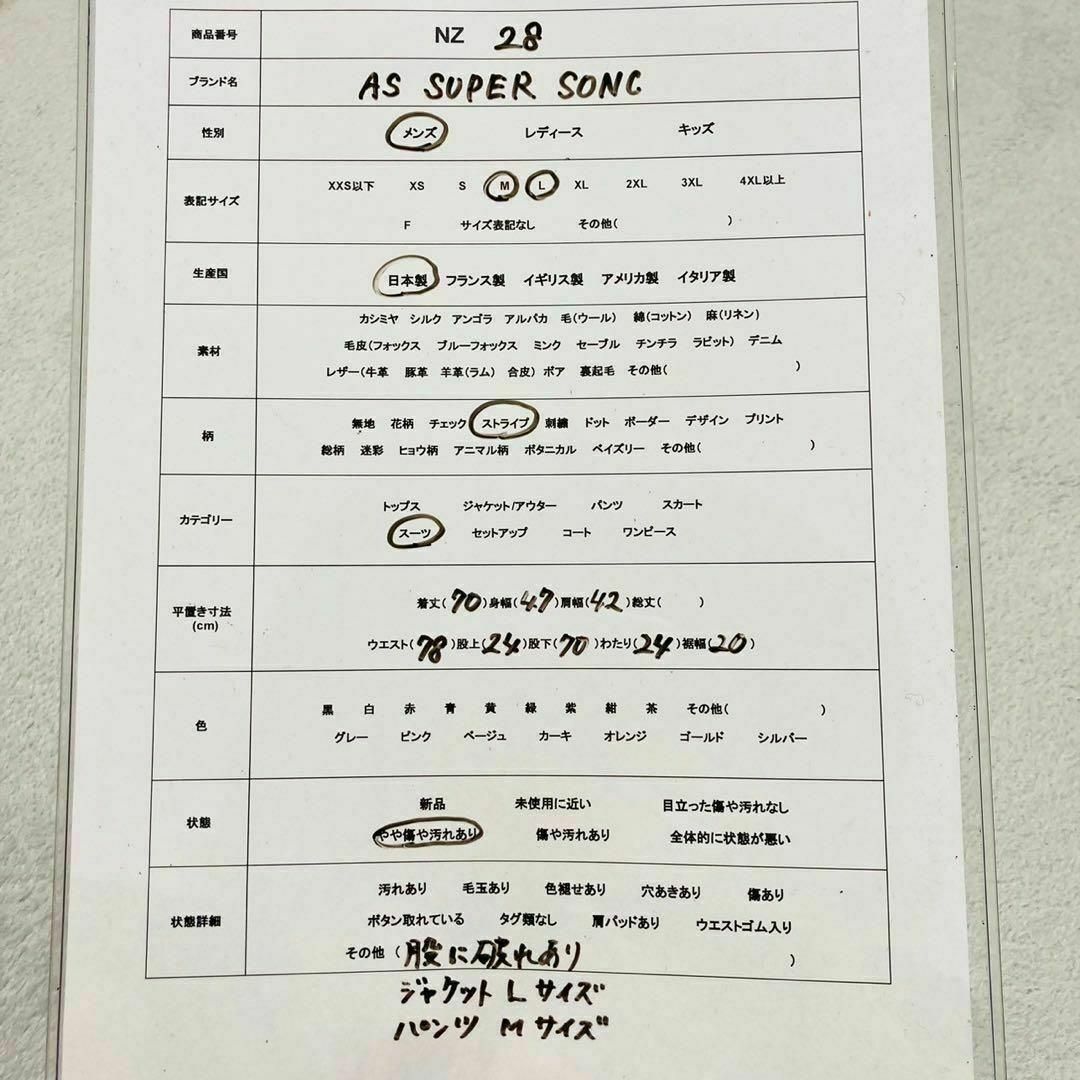 商品番号 NZ 28
ブランド名 AS SUPER SONC
性別 メンズ レディース キッズ
表記サイズ
XXS以下 XS S M L XL 2XL 3XL 4XL以上
F サイズ表記なし その他( )
生産国 日本製 フランス製 イギリス製 アメリカ製 イタリア製
素材
カシミヤ シルク アンゴラ アルパカ 毛(ウール) 綿(コットン) 麻(リネン)
毛皮(フォックス ブルーフォックス ミンク セーブル チンチラ ラビット) デニム
レザー(牛革 豚革 羊革(ラム) 合皮) ボア 裏起毛 その他( )
柄
無地 花柄 チェック ストライプ 刺繍 ドット ボーダー デザイン プリント
総柄 迷彩 ヒョウ柄 アニマル柄 ボタニカル ペイズリー その他( )
カテゴリー
トップス ジャケット/アウター パンツ スカート
スーツ セットアップ コート ワンピース
平置き寸法
(cm)
着丈(70)身幅(47)肩幅(42)総丈( )
ウエスト(78)股上(24)股下(70)わたり(24)裾幅(20)
色
黒 白 赤 青 黄 緑 紫 紺 茶 その他( )
グレー ピンク ベージュ カーキ オレンジ ゴールド シルバー
状態
新品 未使用に近い 目立った傷や汚れなし
やや傷や汚れあり 傷や汚れあり 全体的に状態が悪い
状態詳細
汚れあり 毛玉あり 色褪せあり 穴あきあり 傷あり
ボタン取れている タグ類なし 肩パッドあり ウエストゴム入り
その他 (股に破れあり )
ジャケット L サイズ
パンツ M サイズ